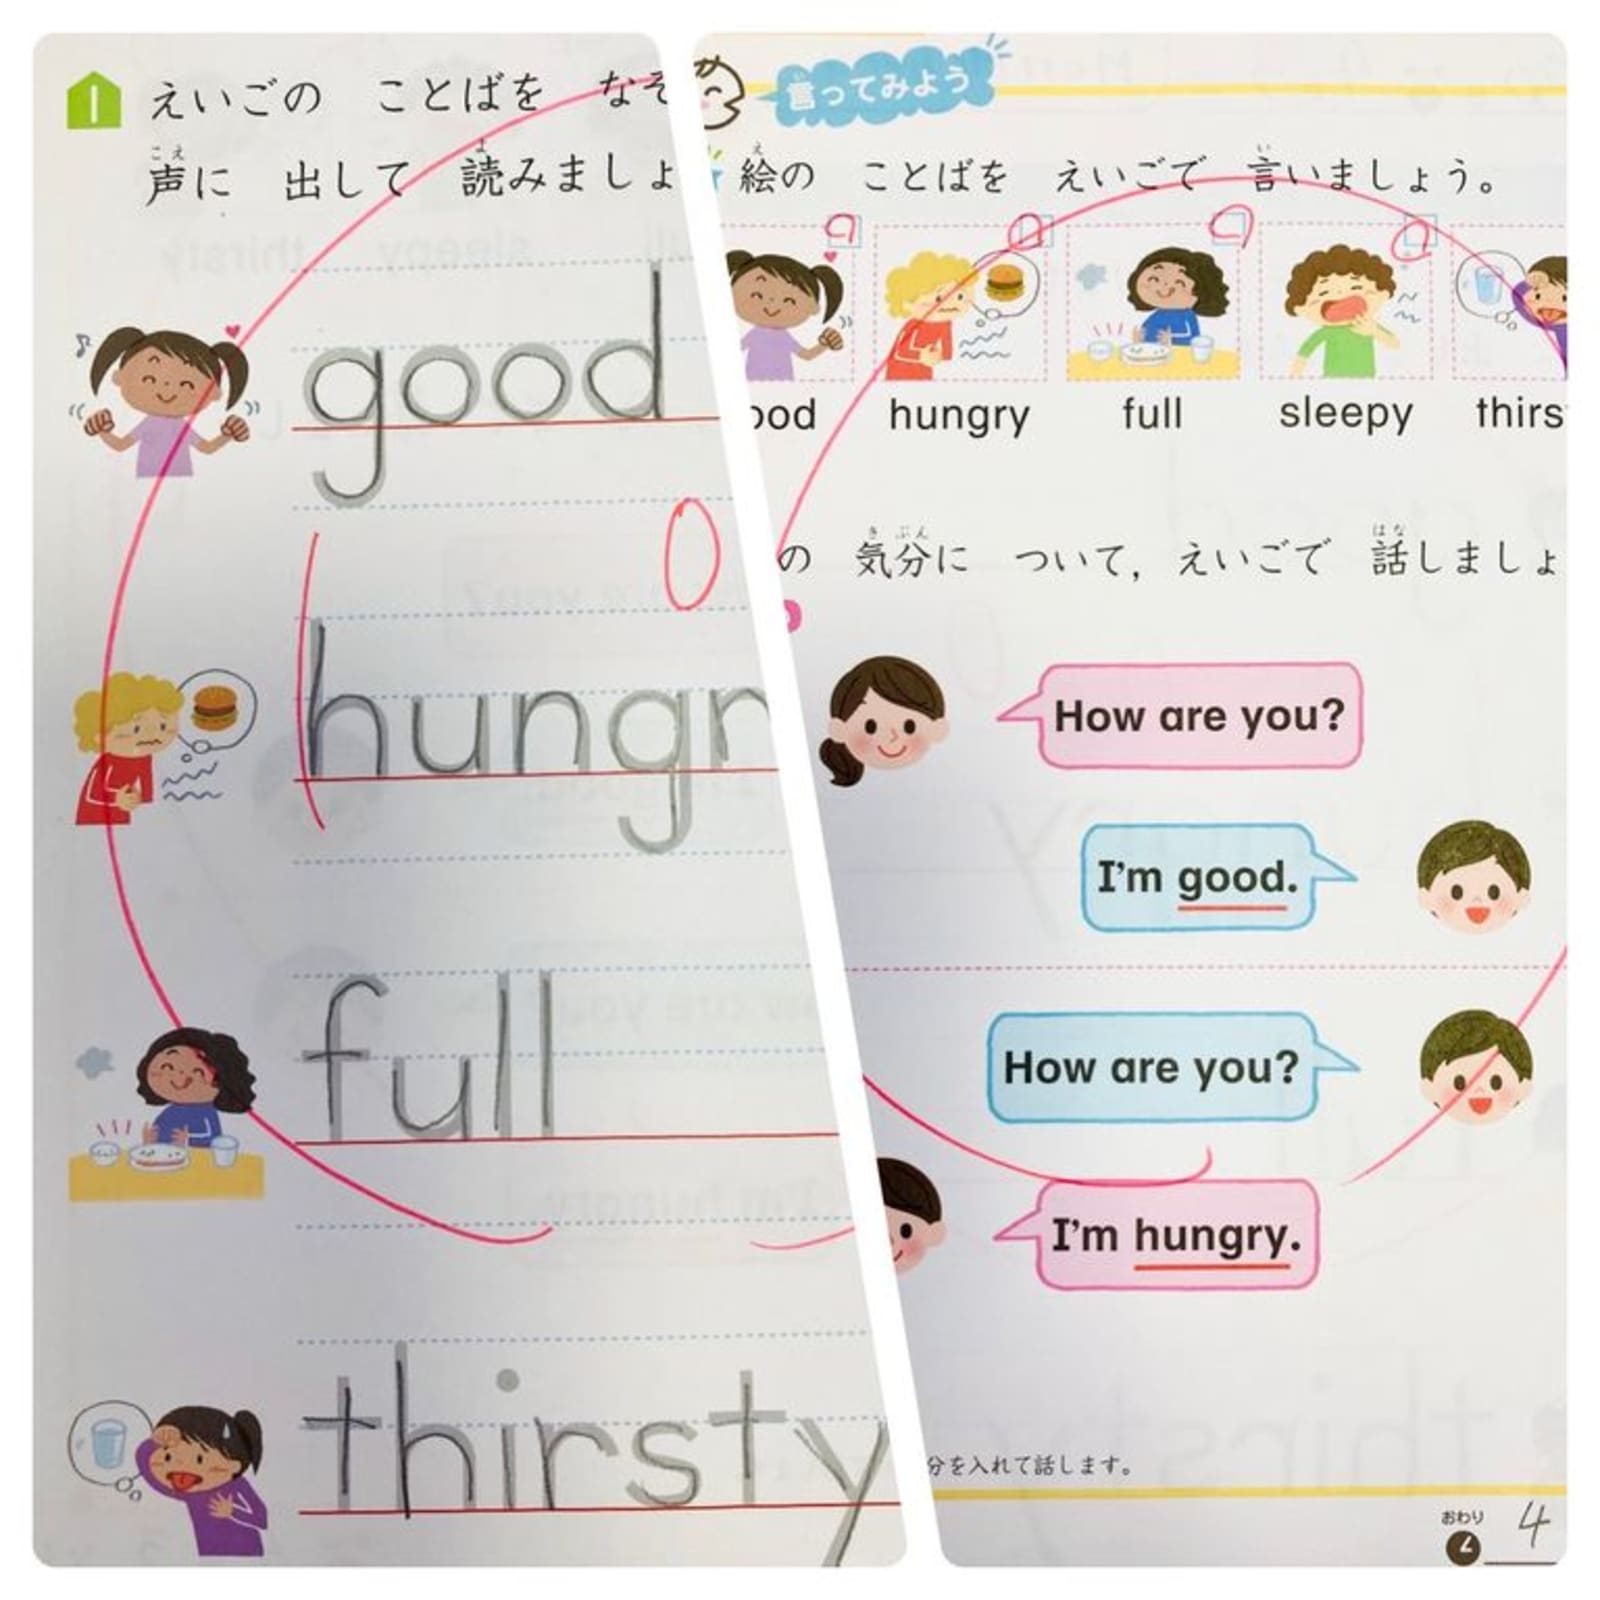 1 えいごの ことばを なぞ
声に 出して 読みましょ
good
hungr
full
thirsty
言ってみよう
絵の ことばを えいごで 言いましょう。
ood hungry full sleepy thirs
の 気分に ついて，えいごで 話しましょ
How are you?
I'm good.
How are you?
I'm hungry.
分を入れて話します。
おわり
4